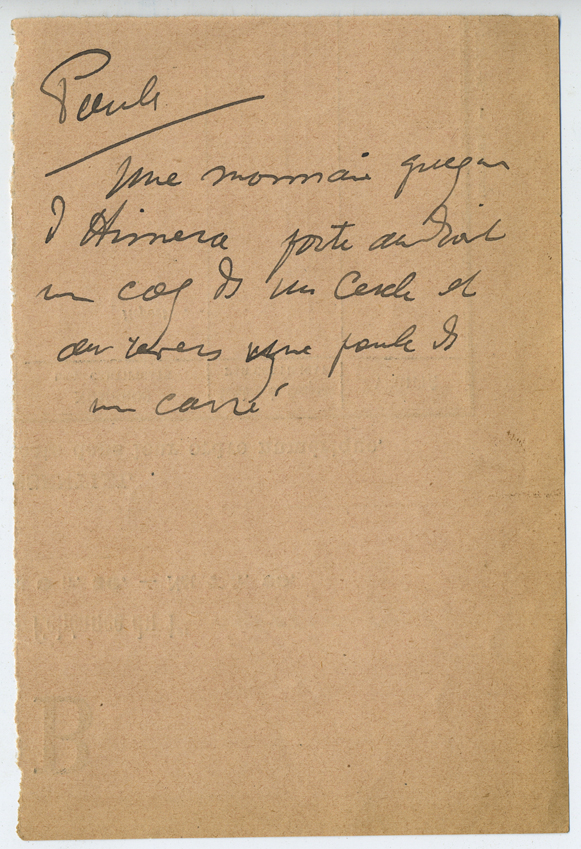 Poule
Une monnaie grecque
d Himera porte au droit
un coq ds un Cercle et
au revers une poule ds
un carré